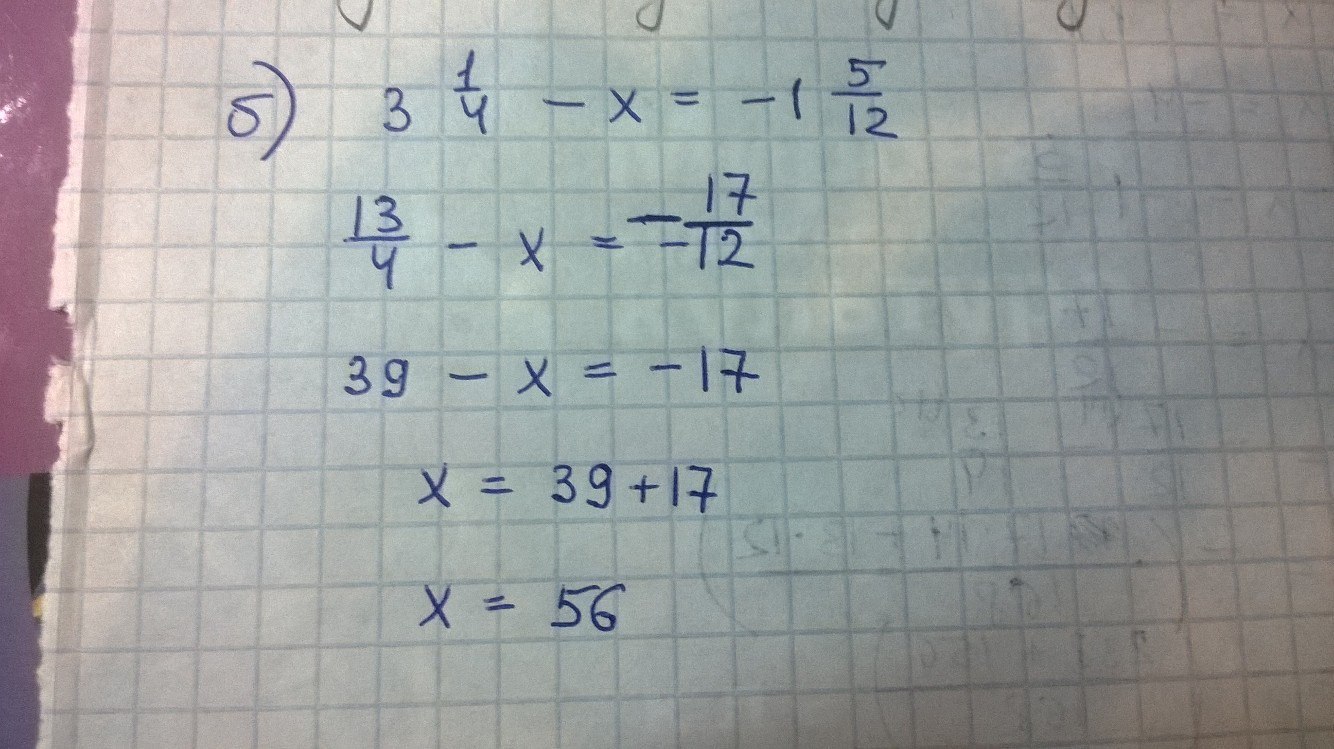 б) 3 1/4 - x = -1 5/12
13/4 - x = - 17/12
39 - x = -17
x = 39 + 17
x = 56